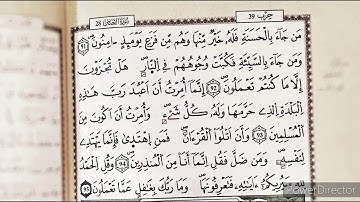 حزب 39
28
مَن جَآءَ بِالْحَسَنَةِ فَلَهُۥ خَيْرٌ مِّنْهَا وَهُم مِّن فَزَعٍ يَوْمَئِذٍ ءَامِنُونَ 91
وَمَن جَآءَ بِالسَّيِّئَةِ فَكُبَّتْ وُجُوهُهُمْ فِي النَّارِ هَلْ تُجْزَوْنَ
إِلَّا مَا كُنتُمْ تَعْمَلُونَ 92 إِنَّمَآ أُمِرْتُ أَنْ أَعْبُدَ رَبَّ هَٰذِهِ
الْبَلْدَةِ الَّذِي حَرَّمَهَا وَلَهُۥ كُلُّ شَيْءٍ وَأُمِرْتُ أَنْ أَكُونَ مِنَ
الْمُسْلِمِينَ 93 وَأَنْ أَتْلُوَا الْقُرْءَانَ فَمَنِ اهْتَدَىٰ فَإِنَّمَا يَهْتَدِي
لِنَفْسِهِ وَمَن ضَلَّ فَقُلْ إِنَّمَآ أَنَا مِنَ الْمُنذِرِينَ 94 وَقُلِ الْحَمْدُ
لِلَّهِ سَيُرِيكُمْ ءَايَٰتِهِ فَتَعْرِفُونَهَا وَمَا رَبُّكَ بِغَٰفِلٍ عَمَّا تَعْمَلُونَ 95
PowerDirector